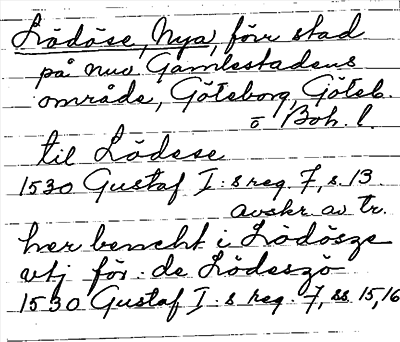 Lödöse, Nya, förr stad
på nuv. Gamlestadens
område, Göteborg, Göteb.
o Boh. l.
til Lödese
1530 Gustaf I:s reg. 7, s. 13.
avskr. av tr.
her benecht i Lödösze
vtj för de Lödeszö
1530 Gustaf I:s reg. 7, ss. 15, 16